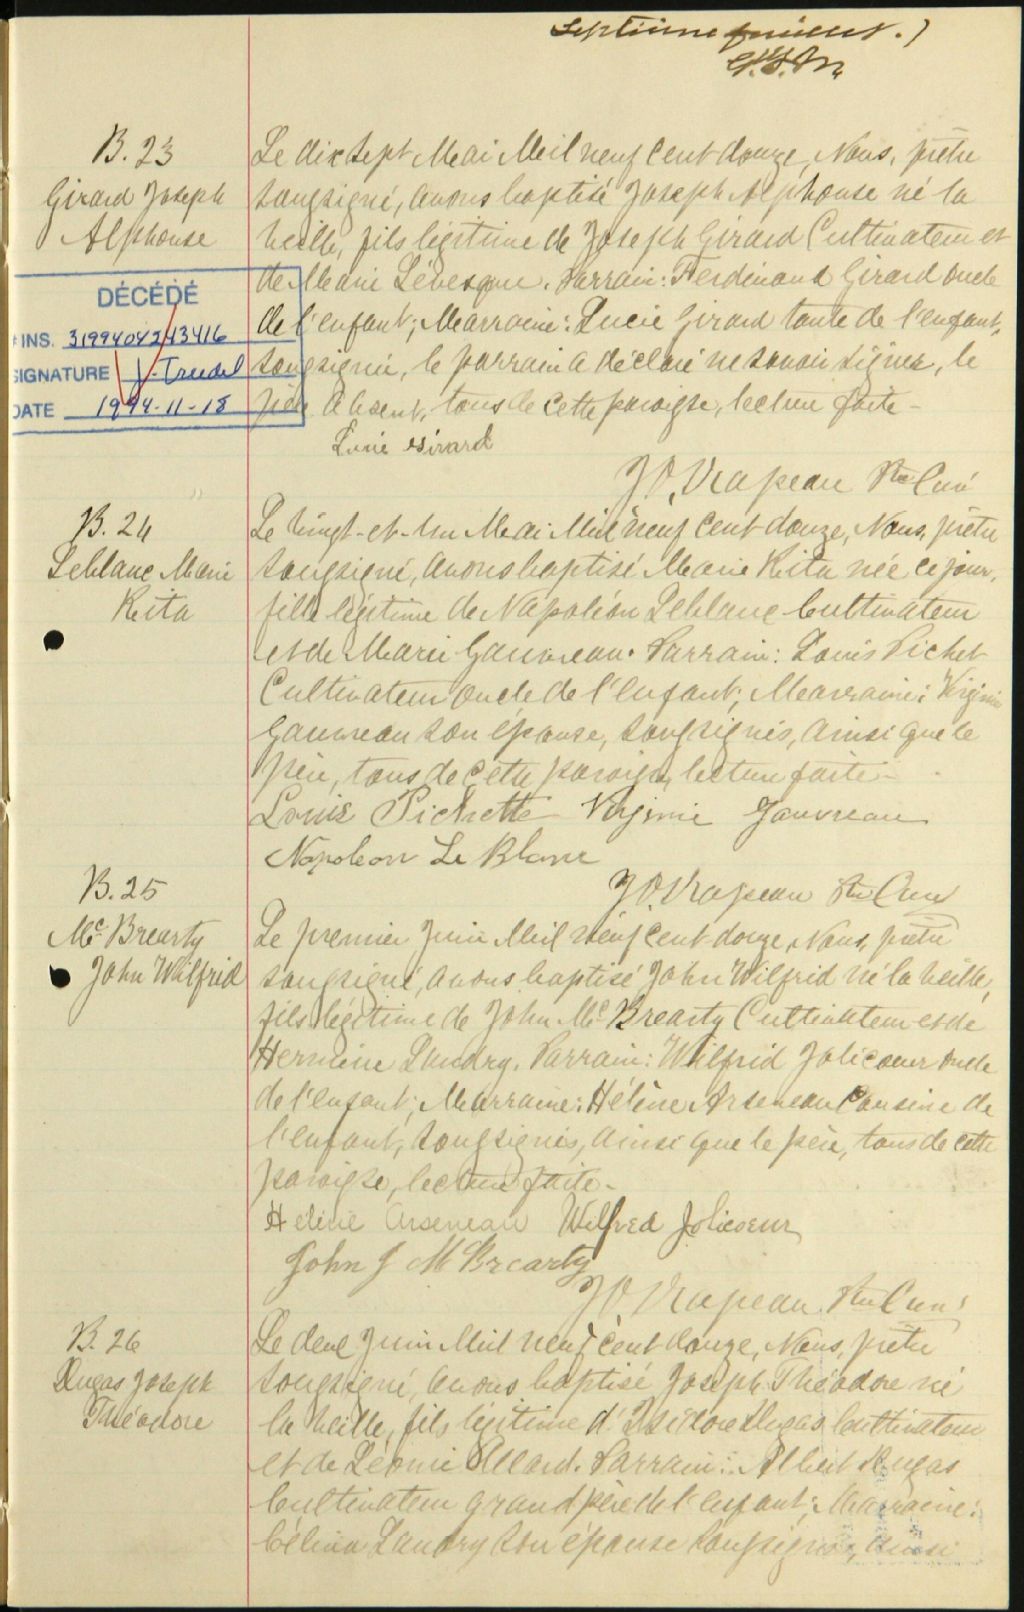 Septième feuillet.)
B. 23
Girard Joseph
Alphonse
Le dix sept Mai Mil neuf cent douze, Nous, prêtre
soussigné, avons baptisé Joseph Alphonse né la
veille, fils légitime de Joseph Girard Cultivateur et
de Marie Lévesque. Parrain: Ferdinand Girard oncle
de l'enfant; Marraine: Lucie Girard tante de l'enfant,
soussignée, le parrain a déclaré ne savoir signer, le
père absent, tous de cette paroisse, lecture faite -
Lucie Girard
J.O. Drapeau Ptre Curé
DÉCÉDÉ
INS. 3199404243416
SIGNATURE J. Trudel
DATE 1994-11-18
B. 24
Leblanc Marie
Rita
Le vingt-et-un Mai Mil neuf cent douze, Nous, prêtre
soussigné, avons baptisé Marie Rita née ce jour,
fille légitime de Napoléon Leblanc Cultivateur
et de Marie Gauvreau. Parrain: Louis Pichet
Cultivateur oncle de l'enfant; Marraine: Virginie
Gauvreau son épouse, soussignés, ainsi que le
père, tous de cette paroisse, lecture faite -
Louis Pichette Virginie Gauvreau
Napoleon Le Blanc
J.O. Drapeau Ptre Curé
B. 25
Mc Brearty
John Wilfrid
Le premier Juin Mil neuf cent douze, Nous, prêtre
soussigné, avons baptisé John Wilfrid né la veille,
fils légitime de John Mc Brearty Cultivateur et de
Hermine Landry. Parrain: Wilfrid Jolicoeur oncle
de l'enfant; Marraine: Hélène Arseneau Cousine de
l'enfant, soussignés, ainsi que le père, tous de cette
paroisse, lecture faite -
Hélène Arseneau Wilfred Jolicoeur
John J Mc Brearty
J.O. Drapeau Ptre Curé
B. 26
Dugas Joseph
Théodore
Le deux Juin Mil neuf cent douze, Nous, prêtre
soussigné, avons baptisé Joseph Théodore né
la veille, fils légitime d'Isidore Dugas Cultivateur
et de Léonie Allard. Parrain: Albert Dugas
Cultivateur grand père de l'enfant; Marraine:
Célina Landry son épouse soussignés, ainsi